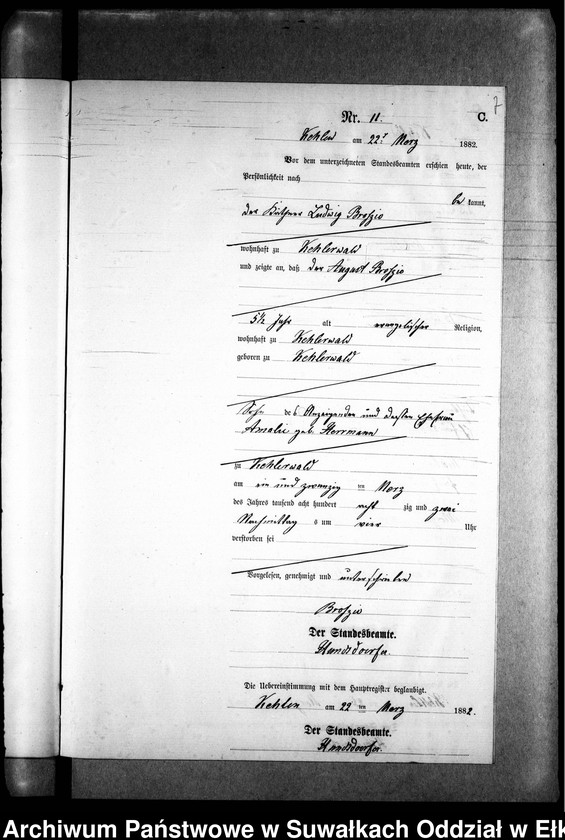 7
Nr. 11. C.
Kehlen am 22ⁿ Merz 1882.
Vor dem unterzeichneten Standesbeamten erschien heute, der
Persönlichkeit nach
be kannt,
der Ludwig Broszio
wohnhaft zu Kehlerwald
und zeigte an, daß der August Broszio
5½ Jahr alt evangelischer Religion,
wohnhaft zu Kehlerwald
geboren zu Kehlerwald
Sohn des Anzeigenden und dessen Ehefrau
Amalie geb. Herrmann
zu Kehlerwald
am ein und zwanzig ten Merz
des Jahres tausend acht hundert acht zig und zwei
Nachmittag s um vier Uhr
verstorben sei
Vorgelesen, genehmigt und unterschrieben
Broszio
Der Standesbeamte.
Die Uebereinstimmung mit dem Hauptregister beglaubigt.
Kehlen am 22 ten Merz 1882.
Der Standesbeamte.
Archiwum Państwowe w Suwałkach Oddział w Ełk